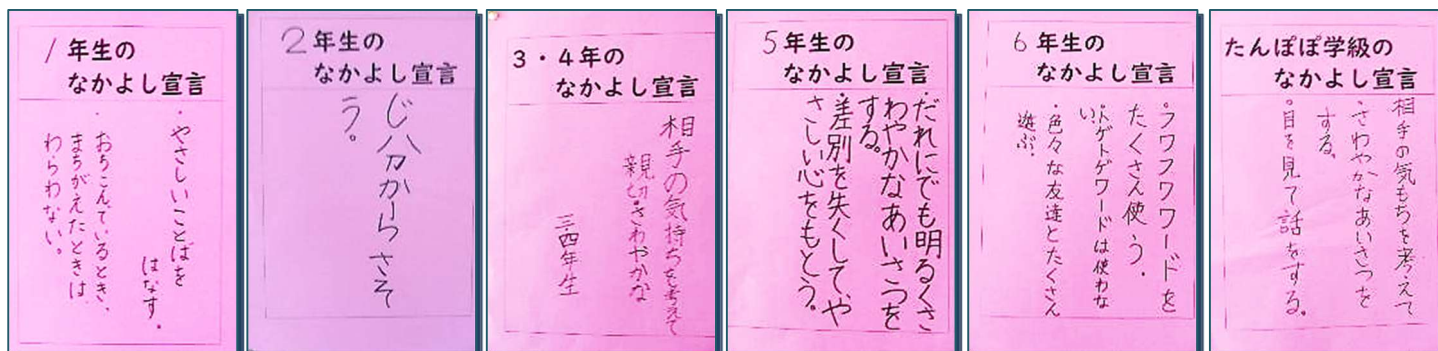 1年生の
なかよし宣言
・やさしいことばを
はなす。
・おちこんでいるとき、
まちがえたときは、
わらわない。
2年生の
なかよし宣言
じ分からさそ
う。
3・4年の
なかよし宣言
相手の気持ちを考えて
親切・さわやかな
三・四年生
5年生の
なかよし宣言
・だれにでも明るくさ
わやかなあいさつを
する。
・差別を失くして、や
さしい心をもとう。
6年生の
なかよし宣言
・フワフワワードを
たくさん使う。
・トゲトゲワードは使わな
い。
・色々な友達とたくさん
遊ぶ。
たんぽぽ学級の
なかよし宣言
相手の気もちを考えて
・さわやかなあいさつを
する。
・目を見て話をする。